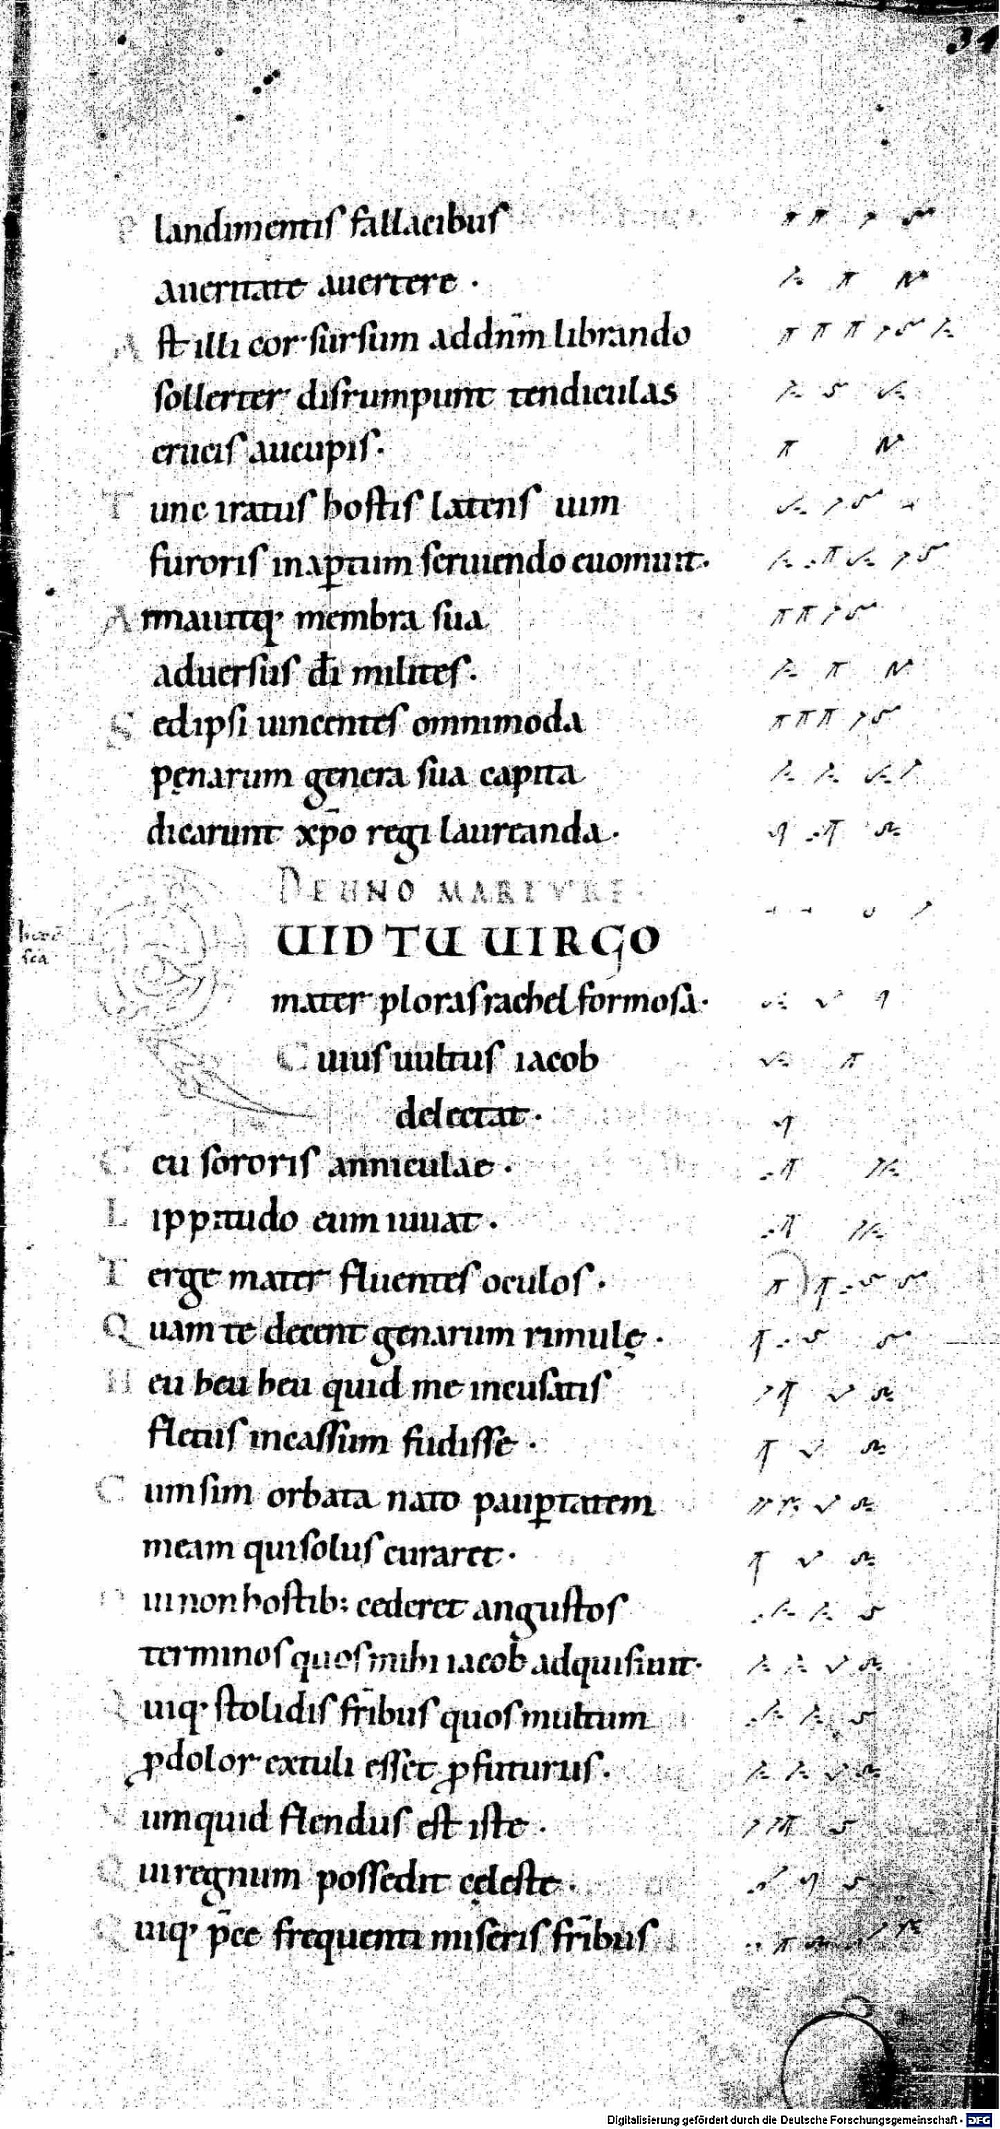 34
Blandimentis fallacibus
aueritate auertere ·
Ast illi cor sursum addn̄m librando
sollerter disrumpunt tendiculas
crucis aucupis ·
Tunc iratus hostis latens uim
furoris inap̱tum seruiendo euomuit ·
Armauitq· membra sua
aduersus dī milites ·
Sed ipsi uincentes omnimoda
pęnarum genera sua capita
dicarunt xp̄o regi laureanda ·
DE UNO MARTYRE ·
UID TU UIRGO
mater ploras rachel formosa ·
Cuius uultus iacob
delectat ·
Ceu sororis anniculae ·
Lippitudo eum iuuat ·
Terge mater fluentes oculos ·
Quam te decent genarum rimulę ·
Heu heu heu quid me incusatis
fletus incassum fudisse ·
Cum sim orbata nato paup̱tatem
meam qui solus curaret ·
ui non hostib; cederet angustos
terminos quos mihi iacob adquisiuit ·
Quiq· stolidis fr̄ibus quos multum
ꝓdolor extuli esset ꝓfuturus ·
Numquid flendus est iste ·
Qui regnum possedit cęleste ·
Quiq· p̄ce frequenti miseris fr̄ibus
Digitalisierung gefördert durch die Deutsche Forschungsgemeinschaft - DFG